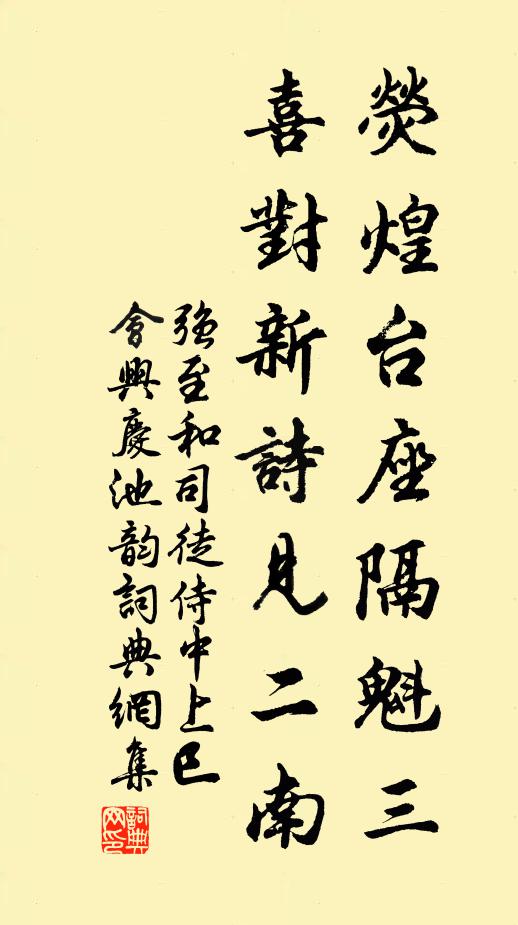 熒煌台座隔魁三
喜對新詩見二南
強至和司徒侍中上巳
會興慶池韵詞典網集
詞典網印